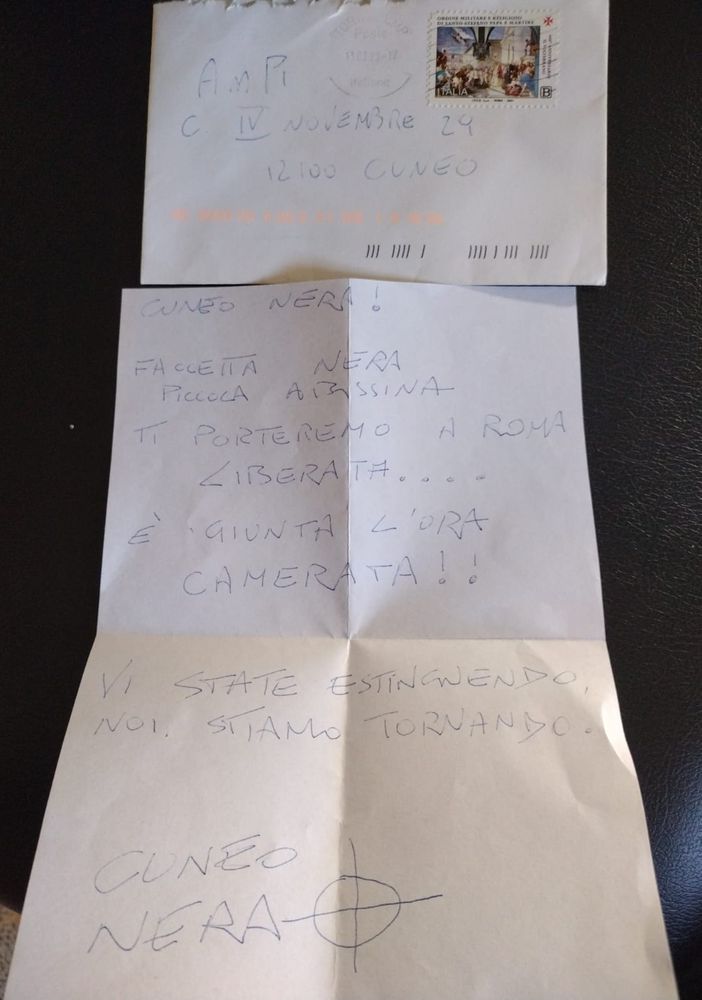 ORDINE MILITARE E RELIGIOSO
DI SANTO STEFANO PAPA E MARTIRE
ITALIA B
Poste
Italiane
AMPI
C. IV NOVEMBRE 29
12100 CUNEO
CUNEO NERA!
FACCETTA NERA
PICCOLA ABISSINA
TI PORTEREMO A ROMA
LIBERATA....
È GIUNTA L'ORA
CAMERATA!!
VI STATE ESTINGUENDO,
NOI. STIAMO TORNANDO.
CUNEO
NERA